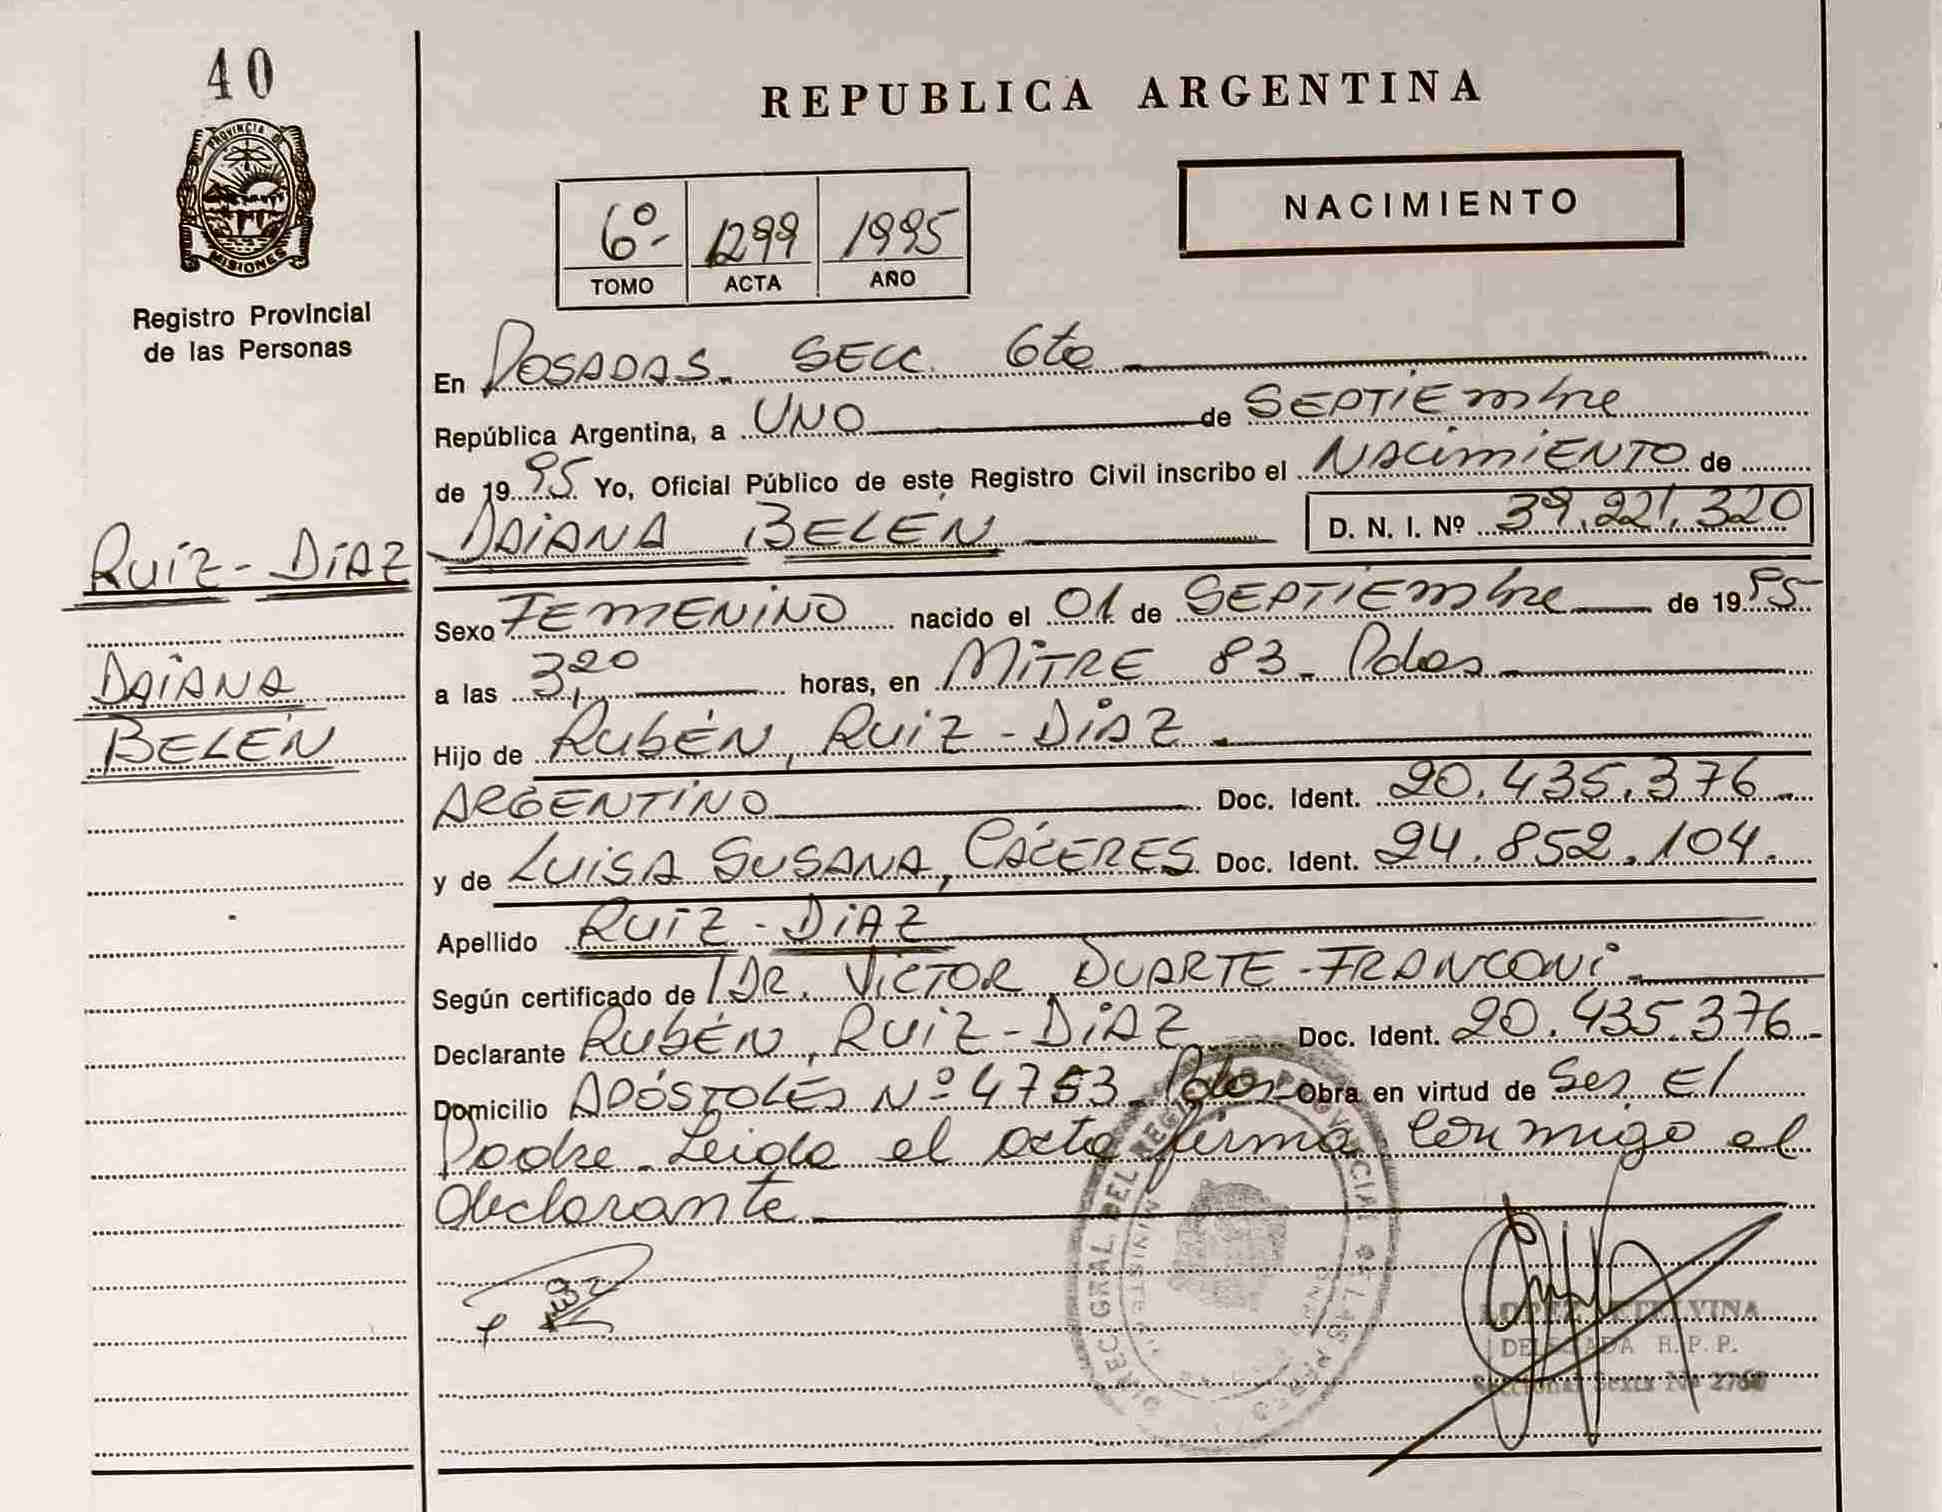 40
PROVINCIA DE
MISIONES
Registro Provincial
de las Personas
RUIZ - DIAZ
DAIANA
BELÉN
REPUBLICA ARGENTINA
NACIMIENTO
6º- 1299 1995
TOMO ACTA AÑO
En POSADAS. SECC. 6ta
República Argentina, a UNO de SEPTIEMbre
de 1995 Yo, Oficial Público de este Registro Civil inscribo el NACIMIENTO de
DAIANA BELÉN D. N. I. Nº 39.221.320
Sexo FEMENINO nacido el 01 de SEPTIEMbre de 1995
a las 3,20 horas, en MITRE 83 - Pdas
Hijo de RUBÉN, RUIZ - DIAZ
ARGENTINO Doc. Ident. 20.435.376
y de LUISA SUSANA, CÁCERES Doc. Ident. 24.852.104.
Apellido RUIZ - DIAZ
Según certificado de DR. VICTOR DUARTE - FRANCONI
Declarante RUBÉN, RUIZ - DIAZ Doc. Ident. 20.435.376
Domicilio APÓSTOLES Nº 4753 - Pdas Obra en virtud de Ser El
Padre - Leida el acta firma conmigo el
declarante
DIREC. GRAL. DEL REGISTRO PROVINCIAL DE LAS PERS.
LOPEZ ETELVINA
DELEGADA R. P. P.
Seccional Sexta Nº